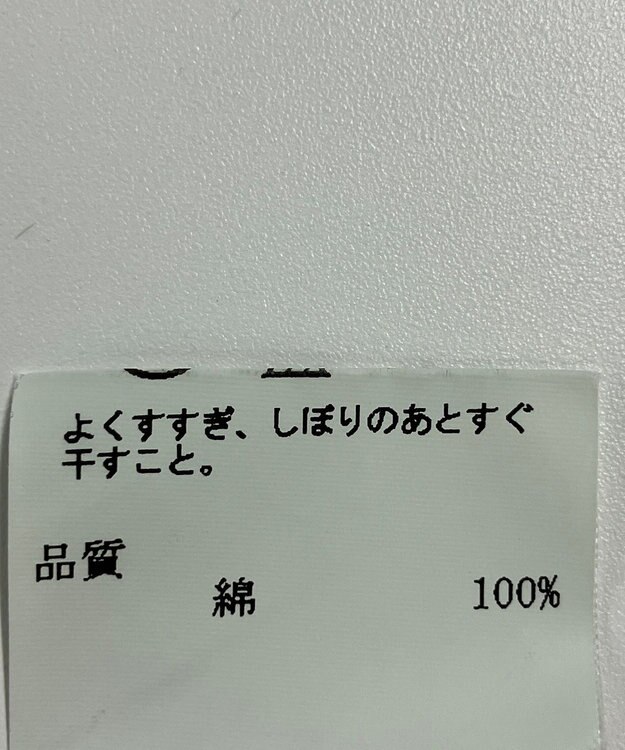 よくすすぎ、しぼりのあとすぐ
干すこと。
品質
綿 100%